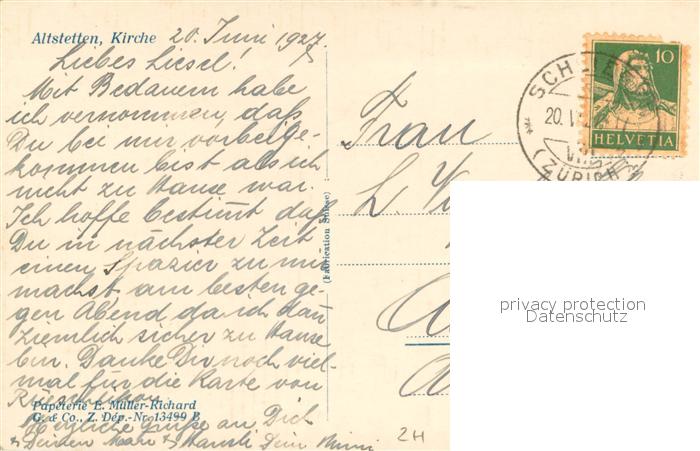 Altstetten, Kirche 20. Juni 1927.
Liebes Liesel!
Mit Bedauern habe
ich vernommen, daß
Du bei mir vorbeige-
kommen bist als ich
nicht zu Hause war.
Ich hoffe bestimt daß
Du in nächster Zeit
einen Spazier zu mir
machst, am besten ge-
gen Abend da ich dan
ziemlich sicher zu Hause
bin. Danke Dir noch viel-
mal für die Karte von
Papeterie E. Müller-Richard
G. & Co., Z. Dép.-Nr. 13499 B
Herzliche Grüße an Dich
& Deinen Mann & Hansli Dein Mimi
(Fabrication Suisse)
Frau
L.
10
HELVETIA
20. VI
(ZÜRICH)
privacy protection
Datenschutz
2H